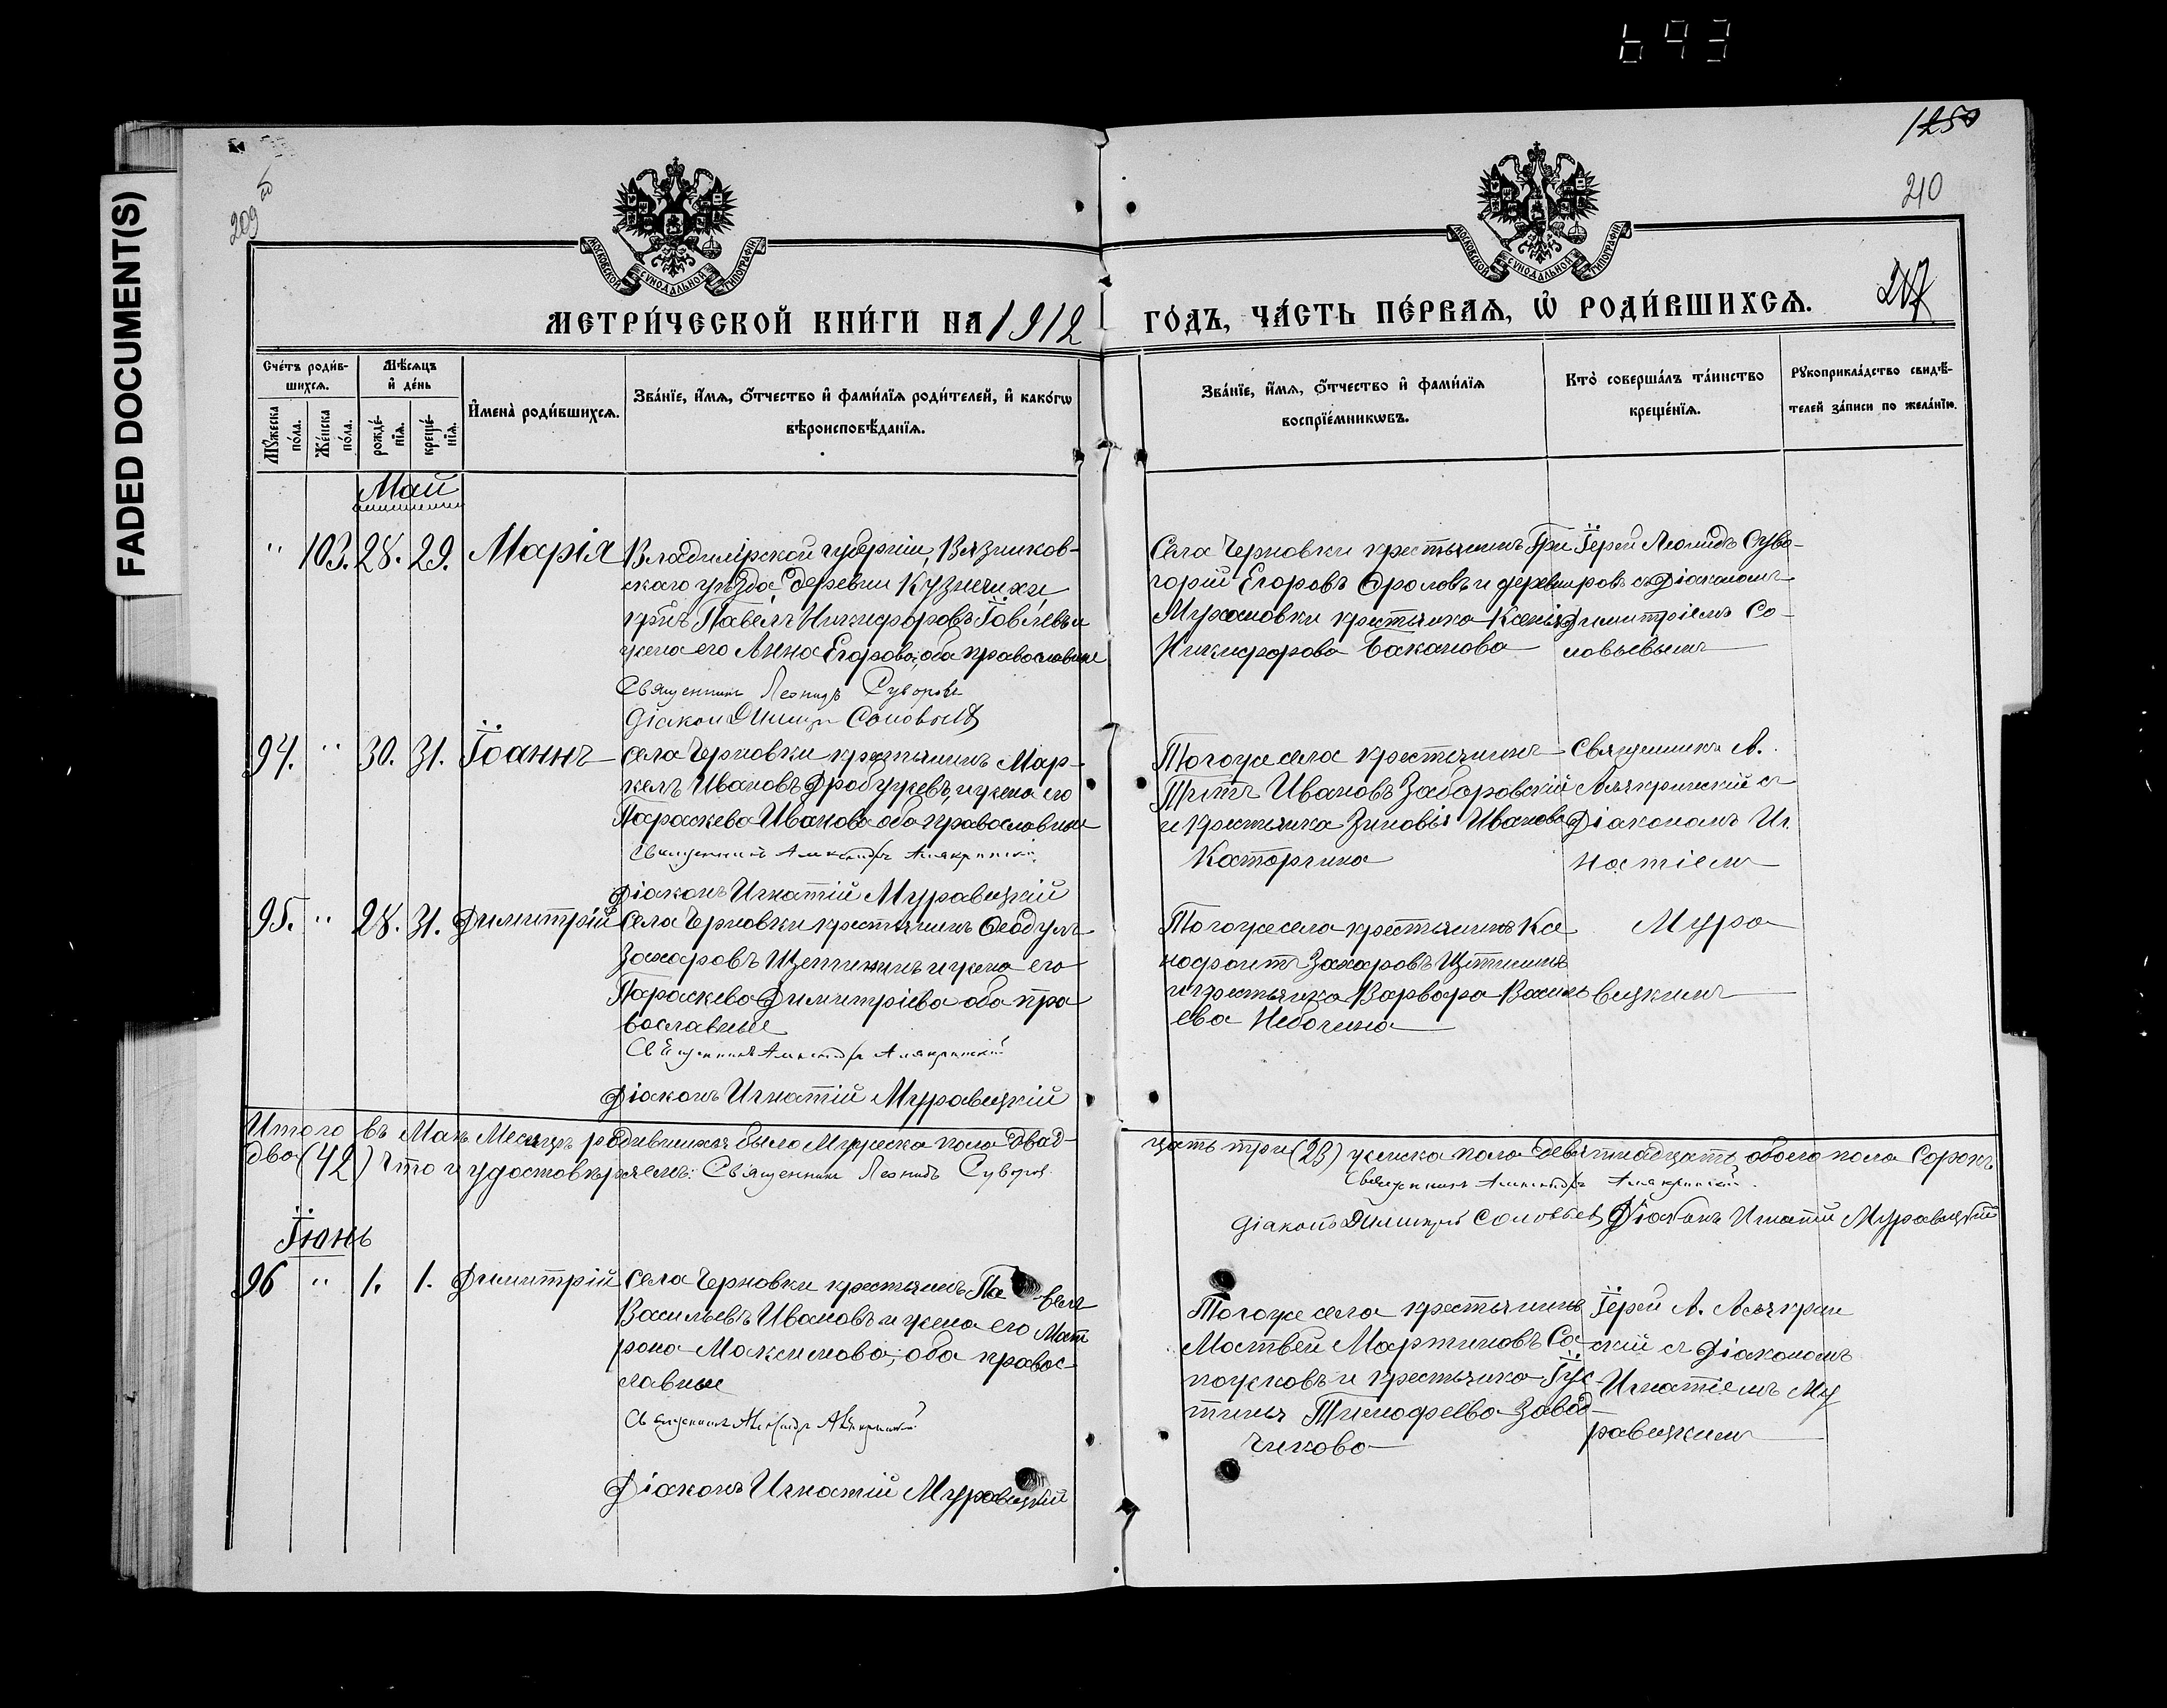 693
FADED DOCUMENT(S)
1250
209 об
210
217
МОСКОВСКОЙ СѴНОДАЛЬНОЙ ТИПОГРАФІИ
МОСКОВСКОЙ СѴНОДАЛЬНОЙ ТИПОГРАФІИ
МЕТРИ́ЧЕСКОЙ КНИ́ГИ НА 1912
ГО́ДЪ, ЧА́СТЬ ПЕ́РВАѦ, Ѽ РОДИ́ВШИХСѦ.
Сче́тъ роди́в-
шихсѧ.
Мѣ́сѧцъ
и҆ де́нь
Мꙋ́жеска
по́ла.
Же́нска
по́ла.
рожде́-
нїѧ.
креще́-
нїѧ.
И҆мена̀ роди́вшихсѧ.
Зва́нїе, и҆́мѧ, ѻ҆́тчество и҆ фами́лїѧ роди́телей, и҆ како́гѡ
вѣроисповѣ́данїѧ.
Зва́нїе, и҆́мѧ, ѻ҆́тчество и҆ фами́лїѧ
воспрїе́мникѡвъ.
Кто̀ соверша́лъ та́инство
креще́нїѧ.
Рꙋкоприкла́дство свидѣ́-
телей за́писи по жела́нїю.
Май
" 103. 28. 29. Марія
Владимірской губерніи, Вязников-
скаго уѣзда, деревни Кузнечихи
кр-нъ Павелъ Никифоровъ и
жена его Анна Егорова, оба православные
Священникъ Леонидъ Суворовъ
Діаконъ Димитр Соловьевъ
Села Черновки крестьянинъ Гри
горій Егоровъ Фроловъ и деревни
крестьянка Ксенія
Никифорова Баканова
Іерей Леонидъ Суво-
ровъ съ Діакономъ
Димитріемъ Со-
ловьевымъ
94. " 30. 31. Іоаннъ
Села Черновки крестьянинъ Мар-
келъ Ивановъ Дробужевъ, и жена его
Параскева Иванова оба православные
Священникъ Александръ Алякринскій
Діаконъ Игнатій Муравицкій
Тогоже села крестьянинъ
Титъ Ивановъ Заборовскій
и крестьянка Зиновія Иванова
Каторгина
Священникъ А.
Алякринскій съ
Діакономъ Иг.
натіемъ
95. " 28. 31. Димитрій
Села Черновки крестьянинъ Феодулъ
Захаровъ Щетининъ и жена его
Параскева Димитріева оба пра
вославные
Священникъ Александръ Алякринскій
Діаконъ Игнатій Муравицкій
Тогоже села крестьянинъ Ксе
нофонтъ Захаровъ Щетининъ
и крестьянка Варвара Василь
ева
Мура
вицкимъ
Итого въ Маѣ Месяцѣ родившихся было Мужеска пола двад-
цать три (23) женска пола девятнадцать, обоего пола Сорокъ
два (42) Что и удостовѣряемъ: Священникъ Леонидъ Суворовъ
Священникъ Александръ Алякринскій.
Діаконъ Димитрій Соловьевъ Діаконъ Игнатій Муравицкій
Іюнь
96 " 1. 1. Димитрій
Села Черновки крестьянинъ Па -велъ
Васильевъ Ивановъ и жена его Мат
рона Максимова; оба правос-
лавные
Священникъ Александръ Алякринскій
Діаконъ Игнатій Муравицкій
Тогоже села крестьянинъ
Матвей Мартиновъ Са-
пожковъ и крестьянка Іус-
тинья Тимофеева Завод-
чикова
Іерей А. Алякрин
скій съ Діакономъ
Игнатіемъ Му
равицкимъ